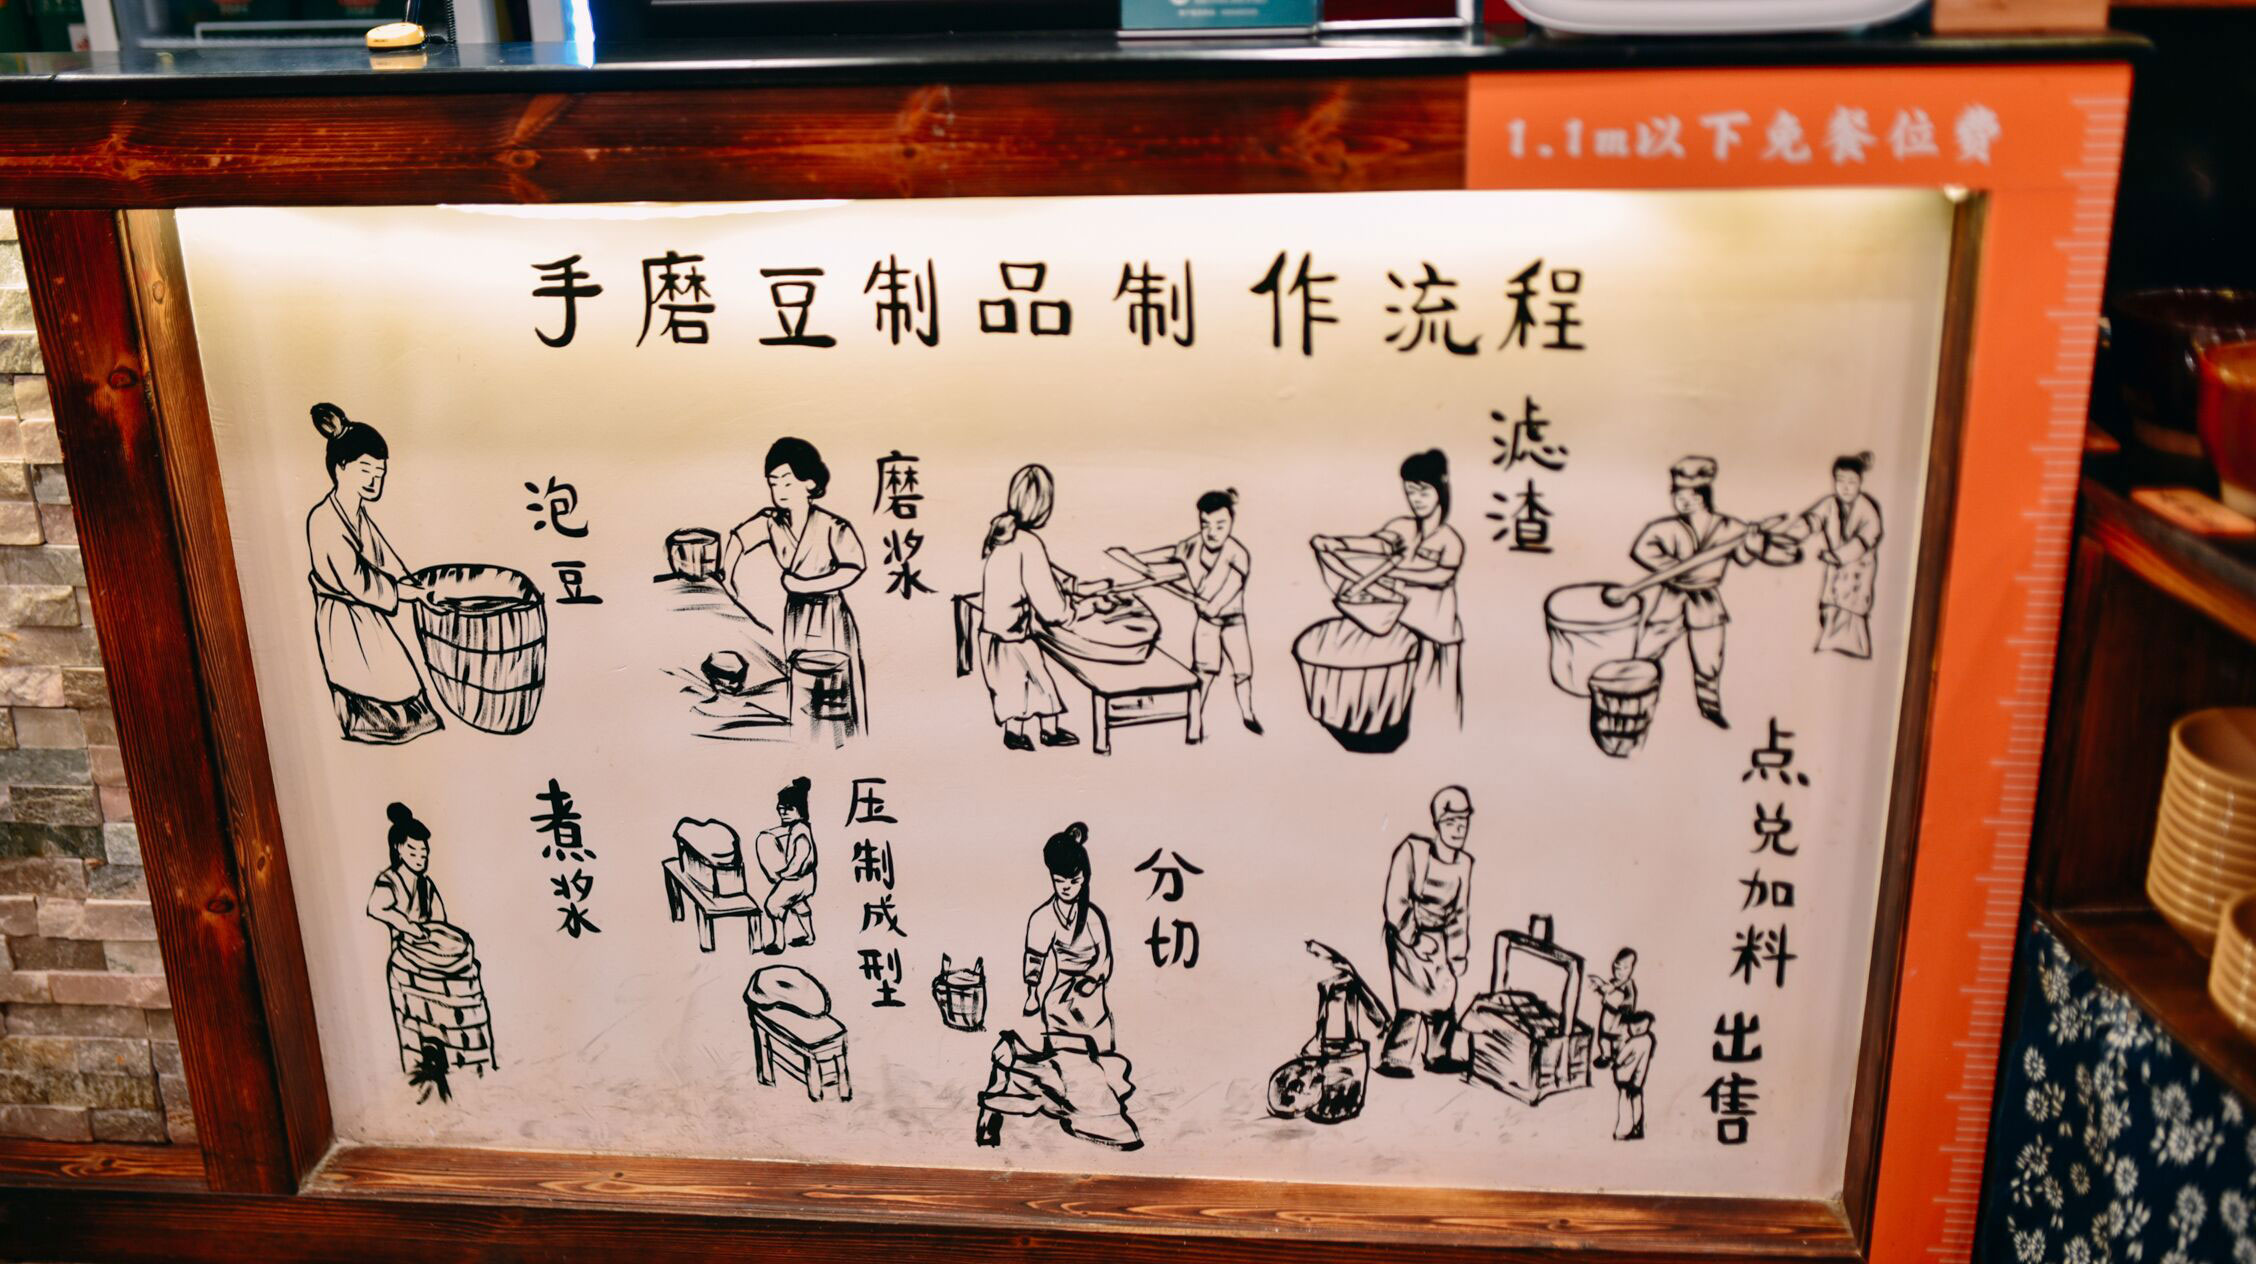 1.1m以下免餐位费
手磨豆制品制作流程
泡豆
磨浆
滤渣
煮浆
压制成型
分切
点兑加料
出售